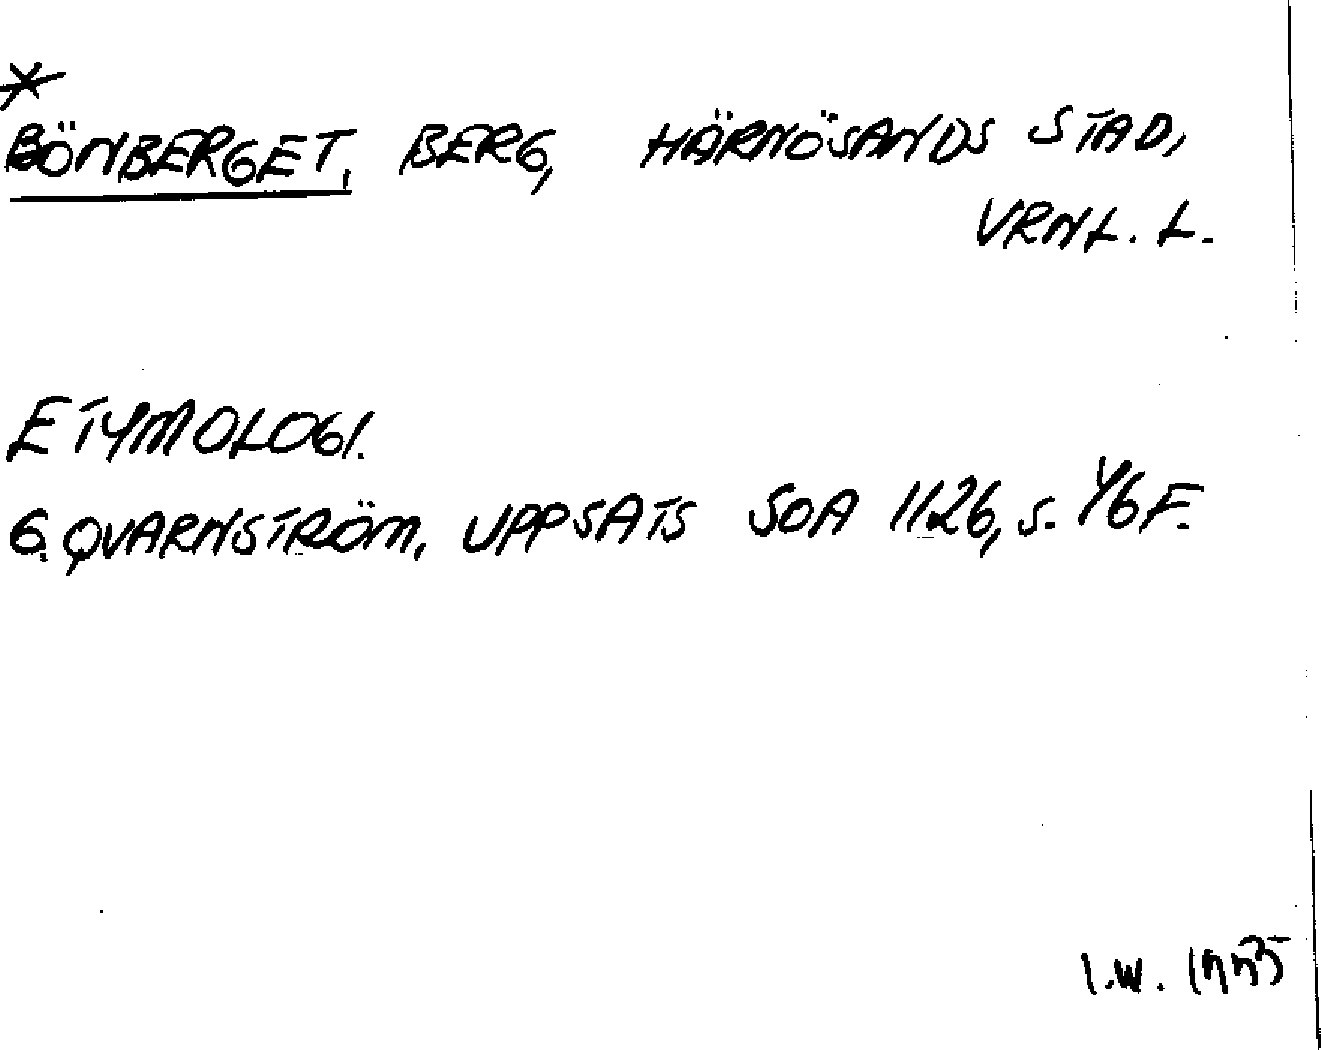 *
BÖNBERGET, BERG, HÄRNÖSANDS STAD,
VRNL. L.
ETYMOLOGI.
G. QVARNSTRÖM, UPPSATS SOA 1126, S. 46 F.
I.W.